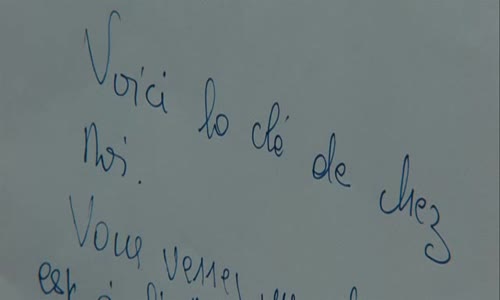 Voici la clé de chez
moi.
Vous verrez
est à